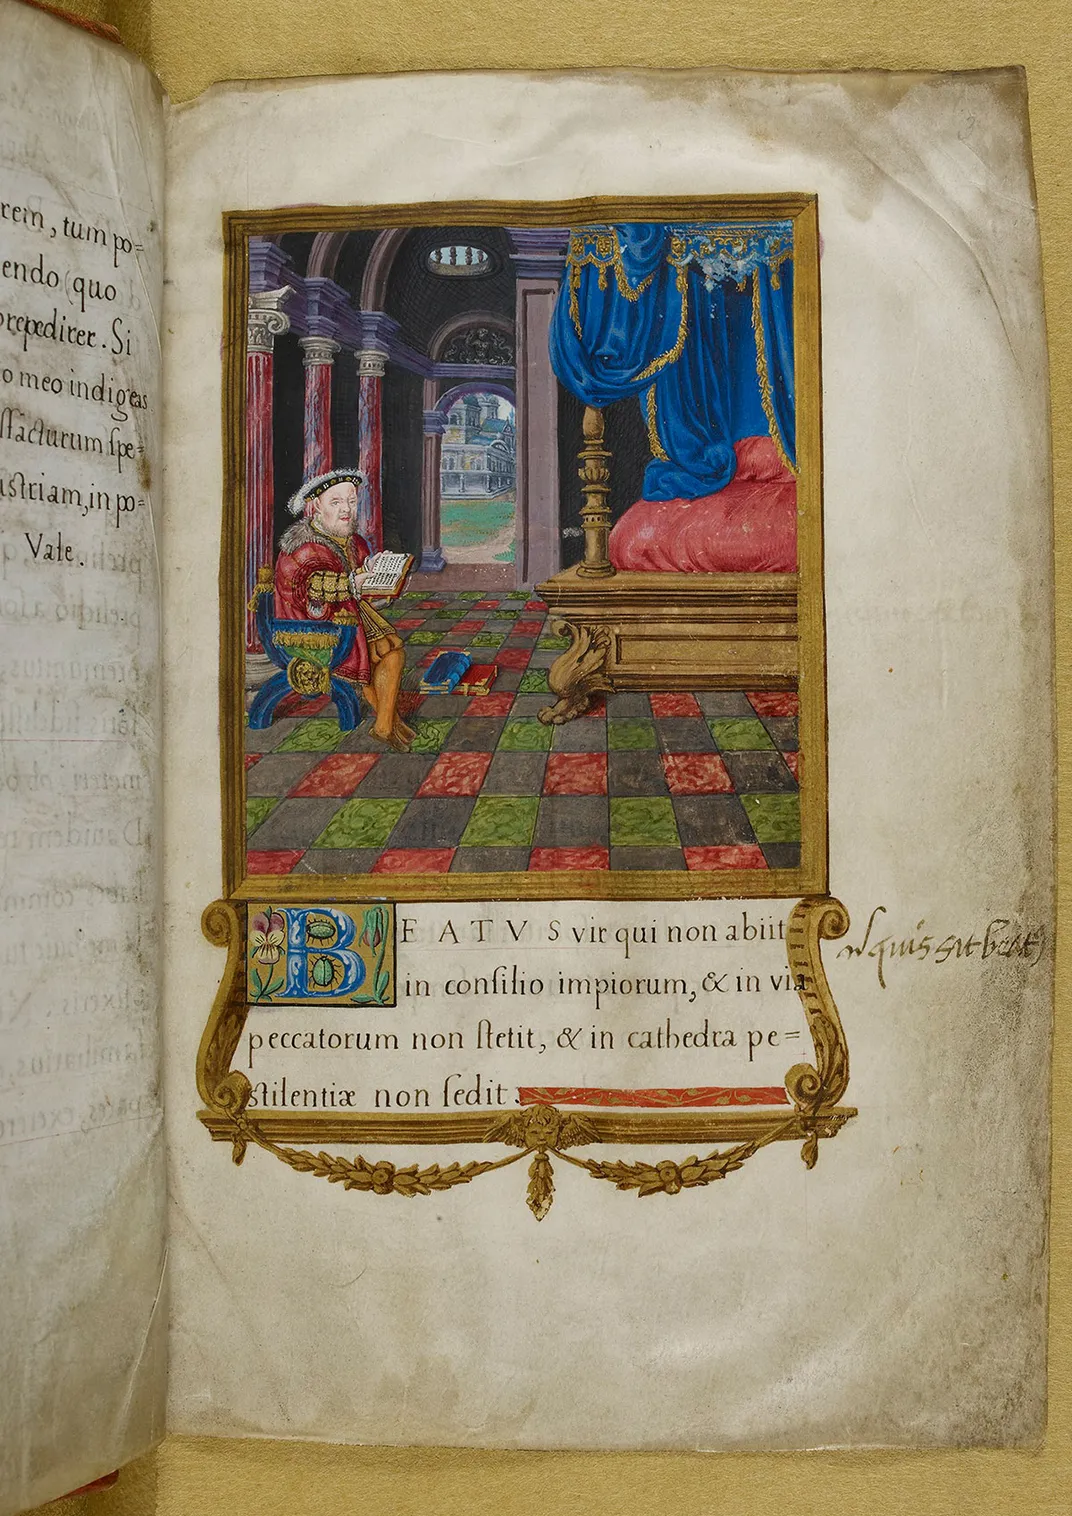 rem, tum po=
endo (quo
prepedirer. Si
o meo indigeas
ssacturum spe=
ustriam, in po=
Vale.
3
BEATVS vir qui non abiit
in consilio impiorum, & in via
peccatorum non stetit, & in cathedra pe=
stilentiæ non sedit.
quis sit beat